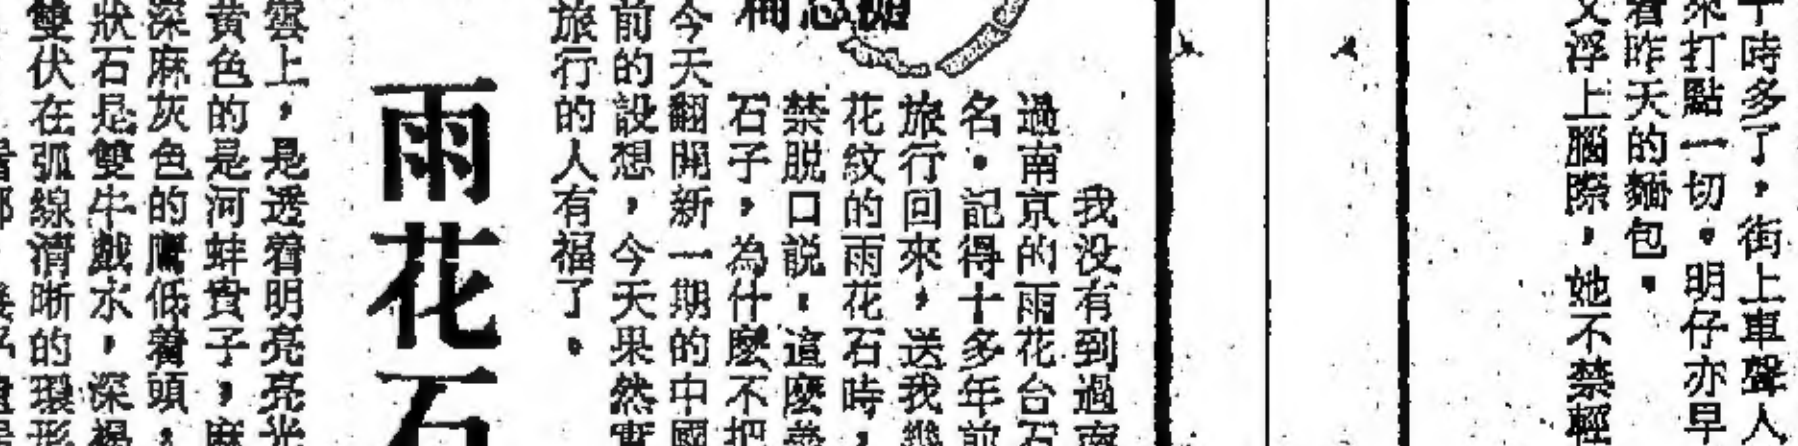 時多了，街上車聲人
來打點一切。明仔亦早
着昨天的麵包。
又浮上腦際，她不禁輕
我没有到過南
過南京的雨花台石
名。記得十多年前
旅行回來，送我幾
花紋的雨花石時，
禁脱口説，這麼美
石子，為什麼不把
今天翻開新一期的中國
前的設想，今天果然實
旅行的人有福了。
雨花石
雲上，是透着明亮亮光
黄色的是河蚌貴子，麻
深麻灰色的鷹低着頭，
狀石是雙牛戲水，深褐
雙伏在弧線清晰的環形